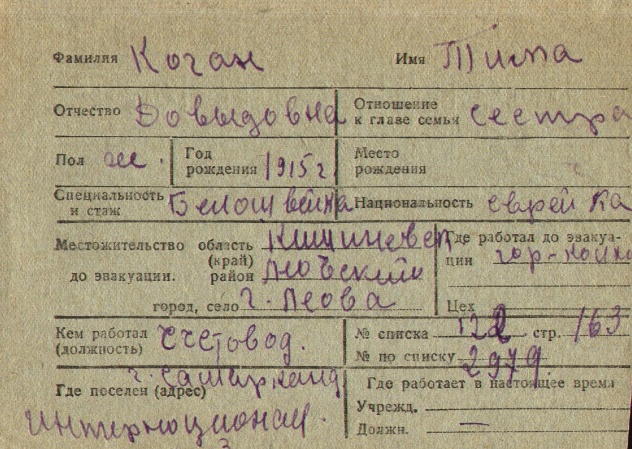 Фамилия Коган Имя Тина
Отчество Довыдовна Отношение к главе семьи сестра
Пол ж. Год рождения 1915 г Место рождения
Специальность и стаж Белошвейка Национальность еврейка
Местожительство до эвакуации. область (край) Кишиневск Где работал до эвакуации
район Леовский
город, село г. Леова Цех
Кем работал (должность) Счетовод. № списка 122 стр. 163
№ по списку 2979.
Где поселен (адрес) г. Самарканд Где работает в настоящее время
Интернационал. Учрежд.
Должн. —